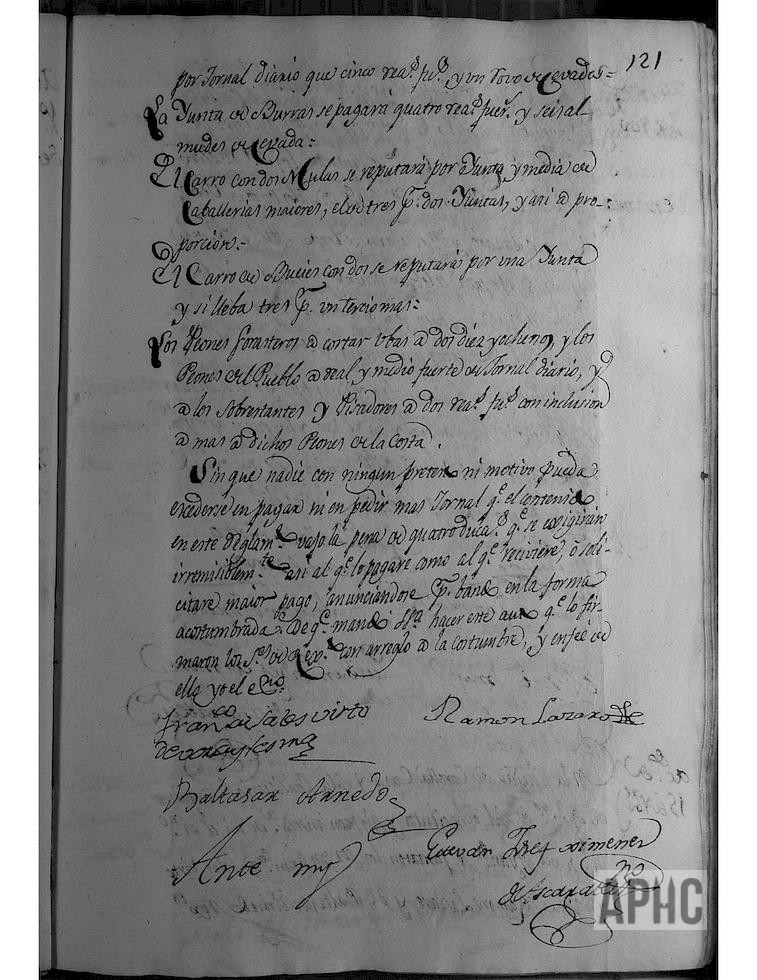 121
por Jornal diario que cinco rea.s fu.s y un Rovo de Cevada=
La Yunta de Burras se pagará quatro rea.s fuer.s y seis al-
mudes de Cevada=
El Carro con dos Mulas se reputará por Yunta y media de
Caballerias maiores, el de tres p.r dos Yuntas, y asi a pro-
porcion=
El Carro de Bueies con dos se reputará por una Yunta
y si lleba tres p.r un tercio mas=
Los Peones forasteros a cortar Ubas a dos diez y ocheno, y los
Peones del Pueblo a real y medio fuerte de Jornal diario, y
a los Sobrestantes y Pisadores a dos rea.s fu.s con inclusion
a mas a dichos Peones de la Costa.
Sin que nadie con ningun pretexto ni motivo pueda
excederse en pagar ni en pedir mas Jornal q.e el contenido
en este Reglam.to vajo la pena de quatro duca.s q.e se exigirán
irremisiblem.te asi al q.e lo pagare como al q.e reciviere, ó soli-
citare maior pago, anunciandose p.r bando en la forma
acostumbrada. De q.e mandó hacer este auto q.e lo fir-
maron los S.res con arreglo a la costumbre, y en fee de
ello yo el es.no
Fran.co de Sales Virto
Ramon Lazaro
Baltasar Arnedo
Ante mi
Estevan Josef Ximenez
de Ascarate
APHC